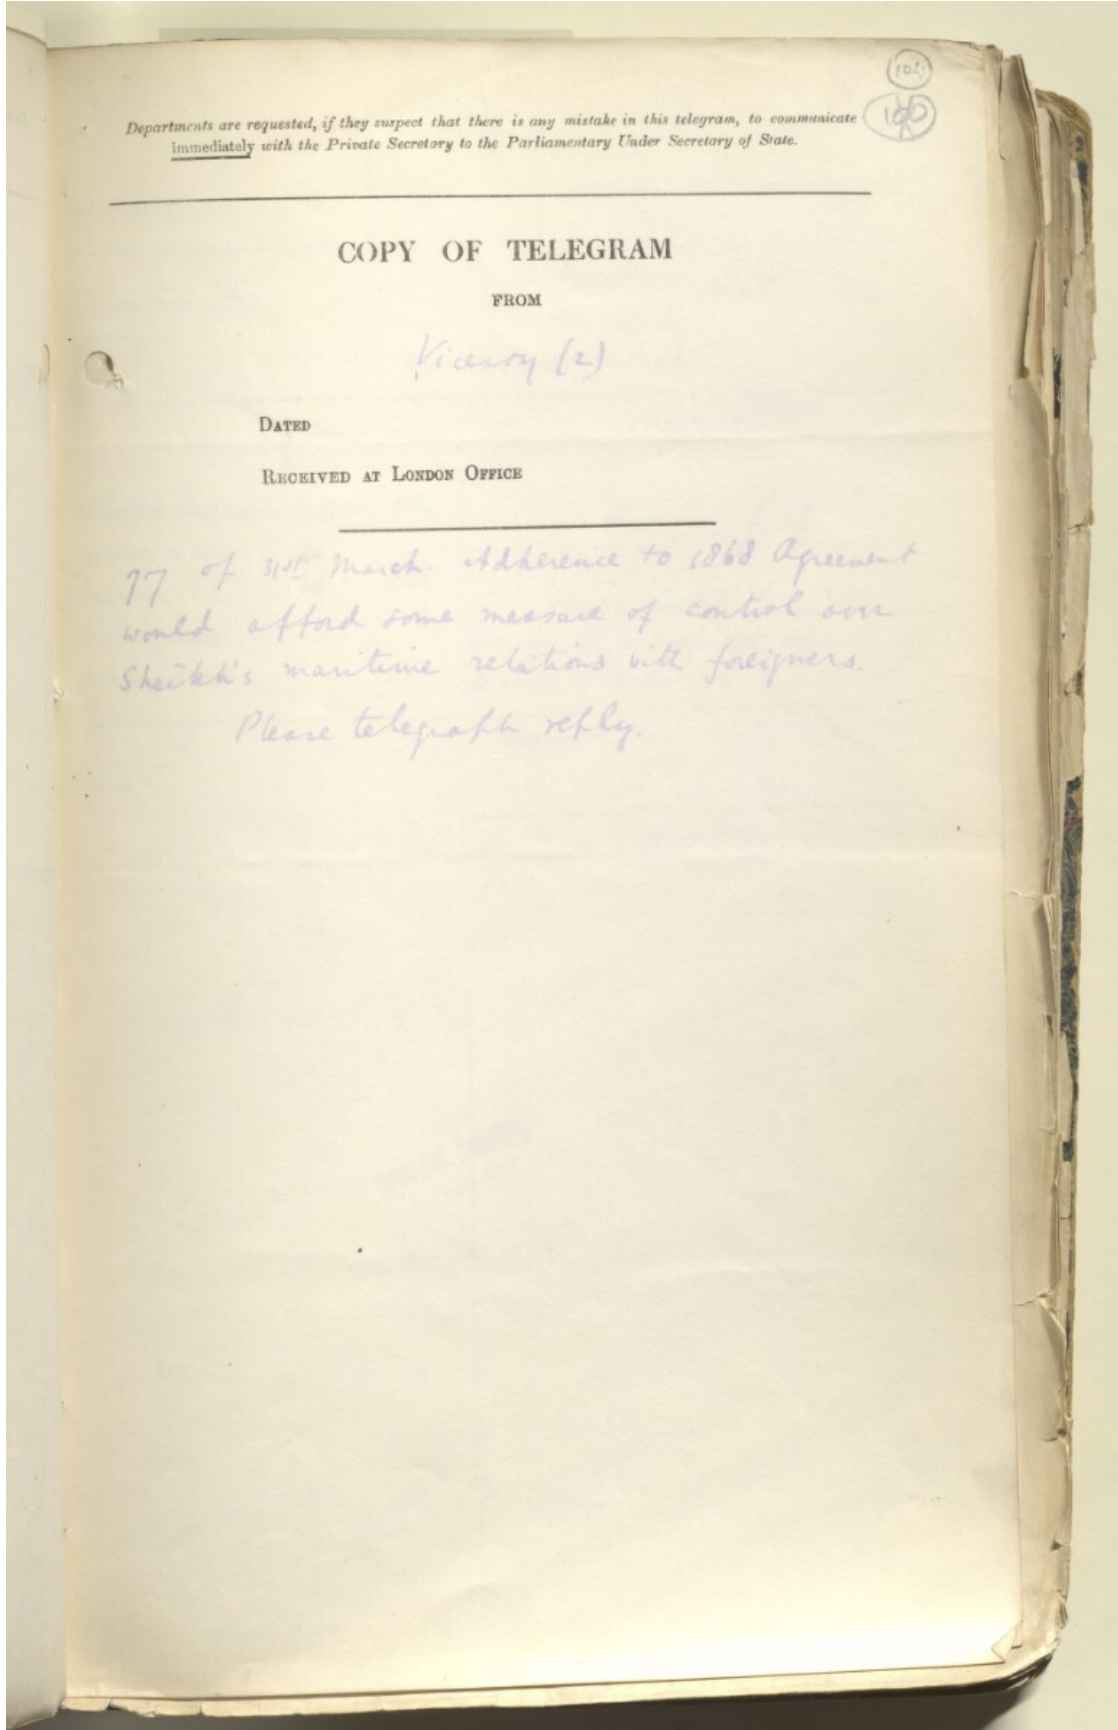 104
100
Departments are requested, if they suspect that there is any mistake in this telegram, to communicate
immediately with the Private Secretary to the Parliamentary Under Secretary of State.
COPY OF TELEGRAM
FROM
Viceroy (2)
DATED
RECEIVED AT LONDON OFFICE
77 of 31st March. Adherence to 1868 Agreement
would afford some measure of control over
Sheikh's maritime relations with foreigners.
Please telegraph reply.